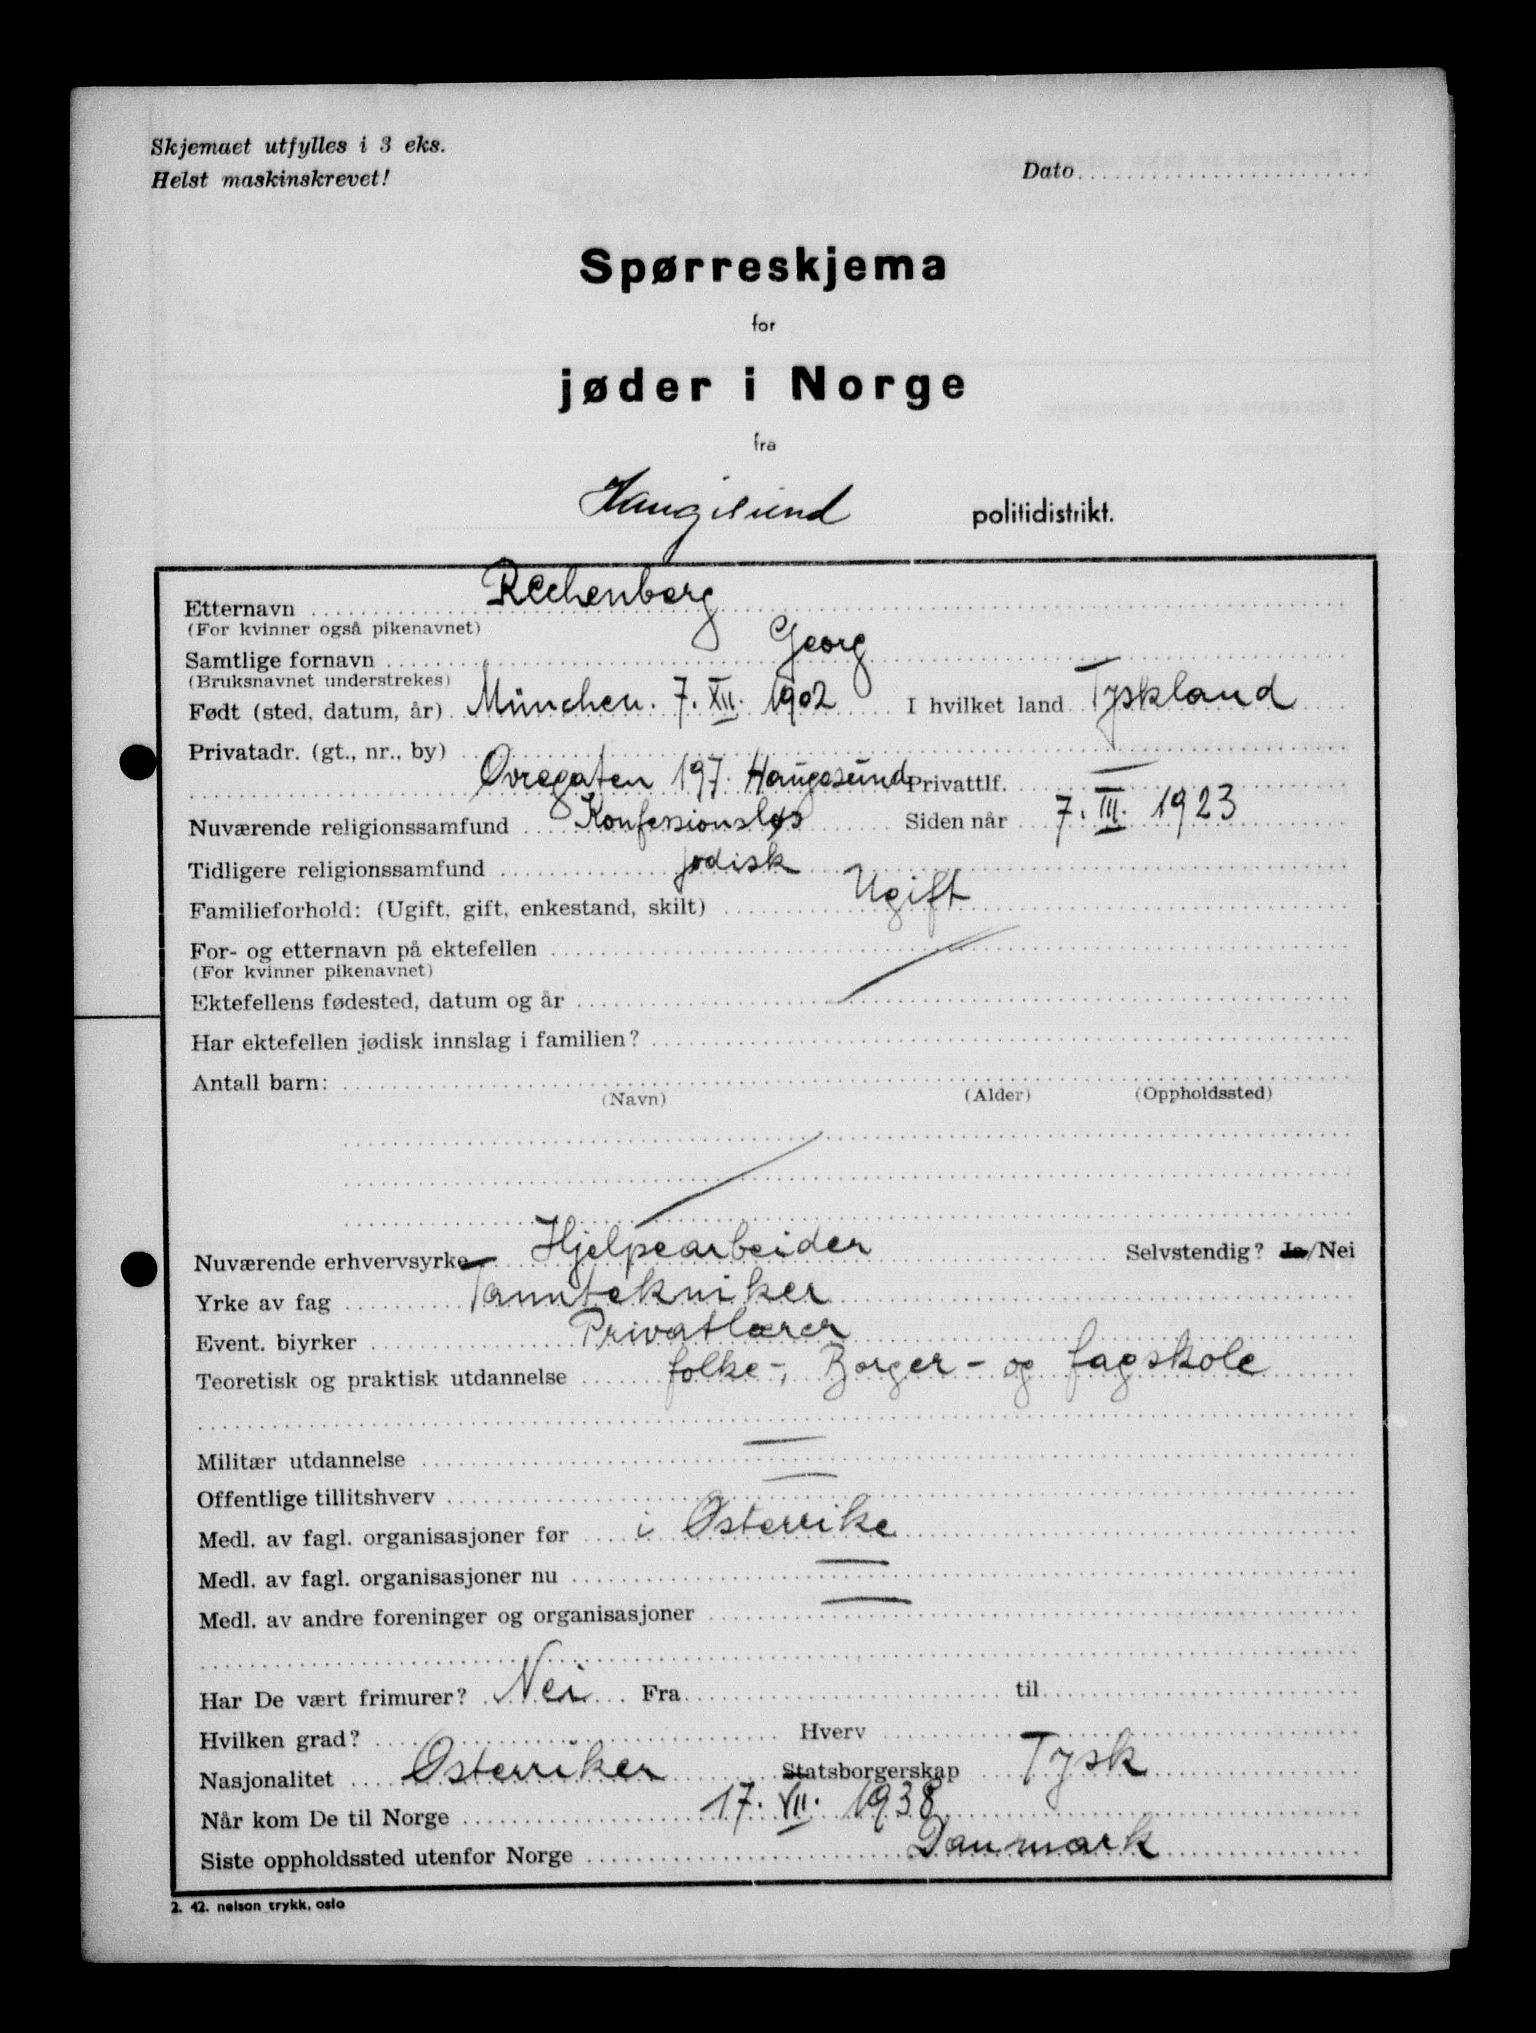 Skjemaet utfylles i 3 eks.
Helst maskinskrevet!
Dato
Spørreskjema
for
jøder i Norge
fra
Haugesund politidistrikt.
Etternavn Rechenberg
(For kvinner også pikenavnet)
Samtlige fornavn Georg
(Bruksnavnet understrekes)
Født (sted, datum, år) München. 7. XII. 1902 I hvilket land Tyskland
Privatadr. (gt., nr., by)
Øvregaten 197. Haugesund Privattlf. —
Nuværende religionssamfund Konfessionsløs Siden når 7. III. 1923
Tidligere religionssamfund jødisk
Familieforhold: (Ugift, gift, enkestand, skilt) Ugift
For- og etternavn på ektefellen
(For kvinner pikenavnet)
Ektefellens fødested, datum og år
Har ektefellen jødisk innslag i familien?
Antall barn:
(Navn) (Alder) (Oppholdssted)
Nuværende erhvervsyrke Hjelpearbeider Selvstendig? Ja/Nei
Yrke av fag Tanntekniker
Event. biyrker Privatlærer
Teoretisk og praktisk utdannelse folke-, Borger- og fagskole
Militær utdannelse —
Offentlige tillitshverv —
Medl. av fagl. organisasjoner før i Østerrike
Medl. av fagl. organisasjoner nu —
Medl. av andre foreninger og organisasjoner —
Har De vært frimurer? Nei Fra til
Hvilken grad? Hverv
Nasjonalitet Østerriker Statsborgerskap Tysk
Når kom De til Norge 17. VII. 1938
Siste oppholdssted utenfor Norge Danmark
2. 42. nelson trykk, oslo